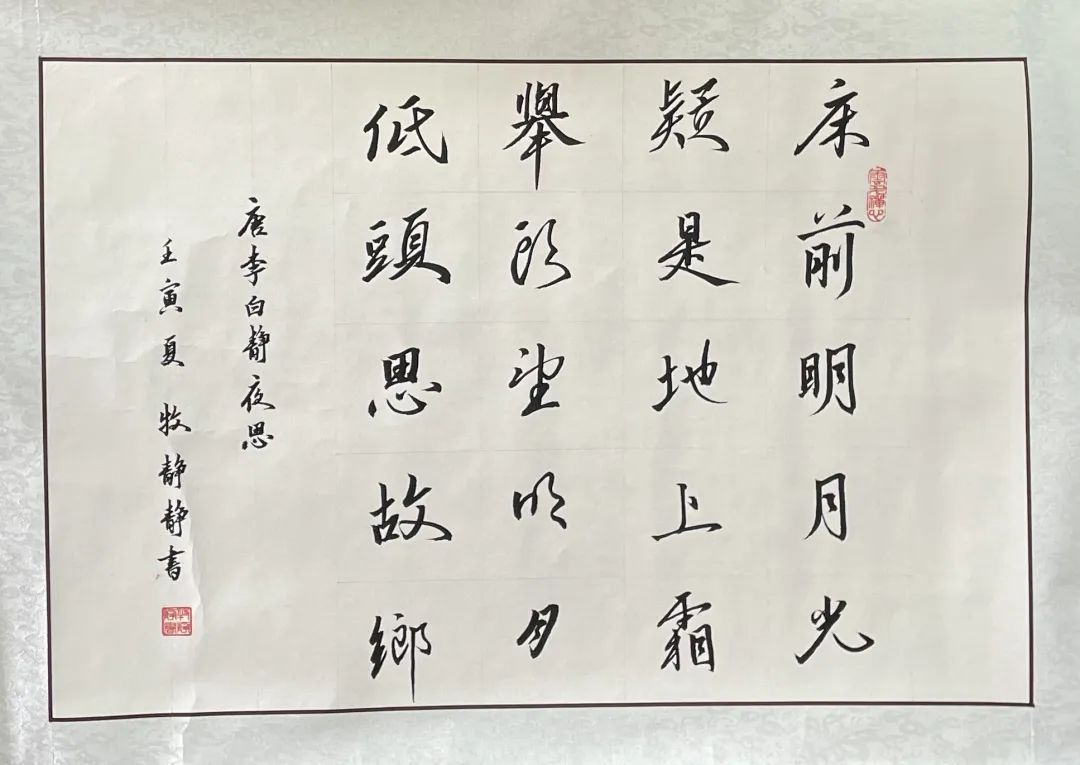 床前明月光
疑是地上霜
舉頭望明月
低頭思故鄉
唐李白静夜思
壬寅夏 牧静静書